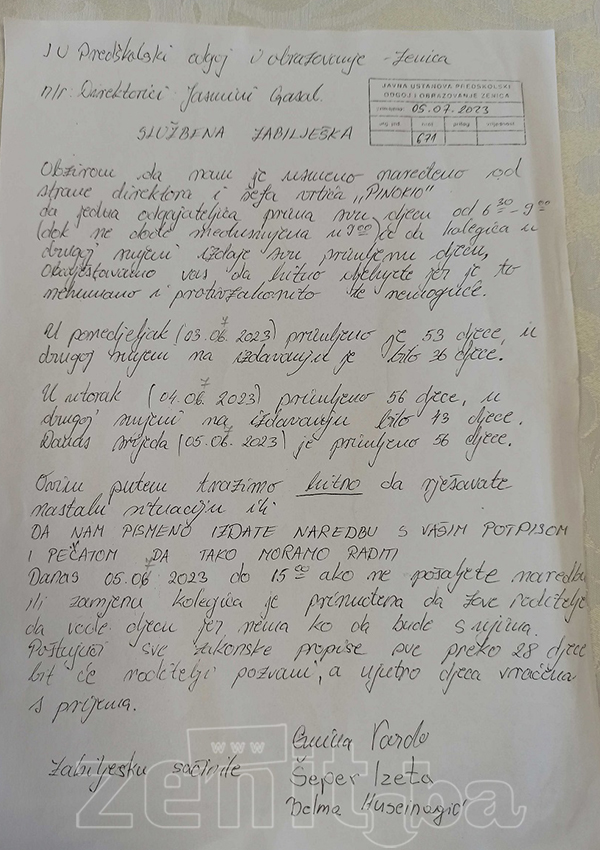 JU Predškolski odgoj i obrazovanje - Zenica
n/r: Direktorici Jasmini Gasal
JAVNA USTANOVA PREDŠKOLSKI
ODGOJ I OBRAZOVANJE ZENICA
05.07.2023
671
SLUŽBENA ZABILJEŠKA
Obzirom da nam je usmeno naređeno od
strane direktora i šefa vrtića „PINOKIO"
da jedna odgajateljica prima svu djecu od 6 30 - 9 00
(dok ne dođe međusmjena u 9 00) te da kolegica u
drugoj smjeni izdaje svu primljenu djecu,
Obavještavamo vas da hitno jer je to
nehumano i protivzakonito te nemoguće.
U ponedjeljak (03.07.2023) primljeno je 53 djece, u
drugoj smjeni na izdavanju je bilo 36 djece.
U utorak (04.07.2023) primljeno 56 djece, u
drugoj smjeni na izdavanju bilo 43 djece.
Danas srijeda (05.07.2023) je primljeno 56 djece.
Ovim putem tražimo hitno da rješavate
nastalu situaciju ili
DA NAM PISMENO IZDATE NAREDBU S VAŠIM POTPISOM
I PEČATOM DA TAKO MORAMO RADITI
Danas 05.07 2023 do 15 00 ako ne pošaljete naredbu
ili zamjenu kolegica je primorana da zove roditelje
da vode djecu jer nema ko da bude s njima.
Poštujući sve zakonske propise sve preko 28 djece
bit će roditelji pozvani, a ujutro djeca vraćena
s prijema.
Zabilješku sačinile
Emina Varda
Šeper Izeta
Delma Huseinagić
www
zenit.ba